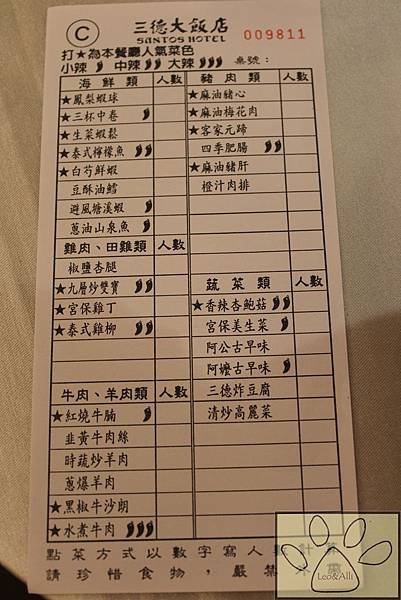 C
三德大飯店
SANTOS HOTEL
009811
打★為本餐廳人氣菜色
小辣 中辣 大辣
桌號：
海鮮類 人數
★鳳梨蝦球
★三杯中卷
★生菜蝦鬆
★泰式檸檬魚
★白芍鮮蝦
豆酥油鱈
避風塘溪蝦
蔥油山泉魚
雞肉、田雞類 人數
椒鹽杏腿
★九層炒雙寶
★宮保雞丁
★泰式雞柳
牛肉、羊肉類 人數
★紅燒牛腩
韭黃牛肉絲
時蔬炒羊肉
蔥爆羊肉
★黑椒牛沙朗
★水煮牛肉
豬肉類 人數
★麻油豬心
★麻油梅花肉
★客家元蹄
四季肥腸
★麻油豬肝
橙汁肉排
蔬菜類 人數
★香辣杏鮑菇
宮保美生菜
阿公古早味
阿嬤古早味
三德炸豆腐
清炒高麗菜
點菜方式以數字寫人數計算
請珍惜食物，嚴禁
Leo&Alli